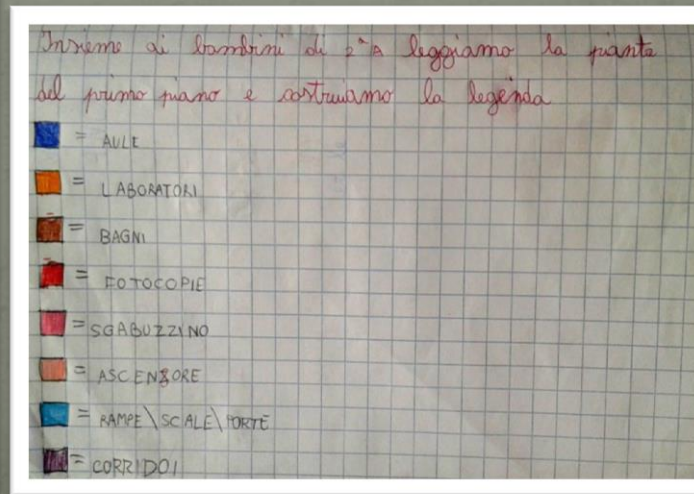 Insieme ai bambini di 2ªA leggiamo la pianta
del primo piano e costruiamo la legenda
= AULE
= LABORATORI
= BAGNI
= FOTOCOPIE
= SGABUZZINO
= ASCENSORE
= RAMPE\SCALE\PORTE
= CORRIDOI